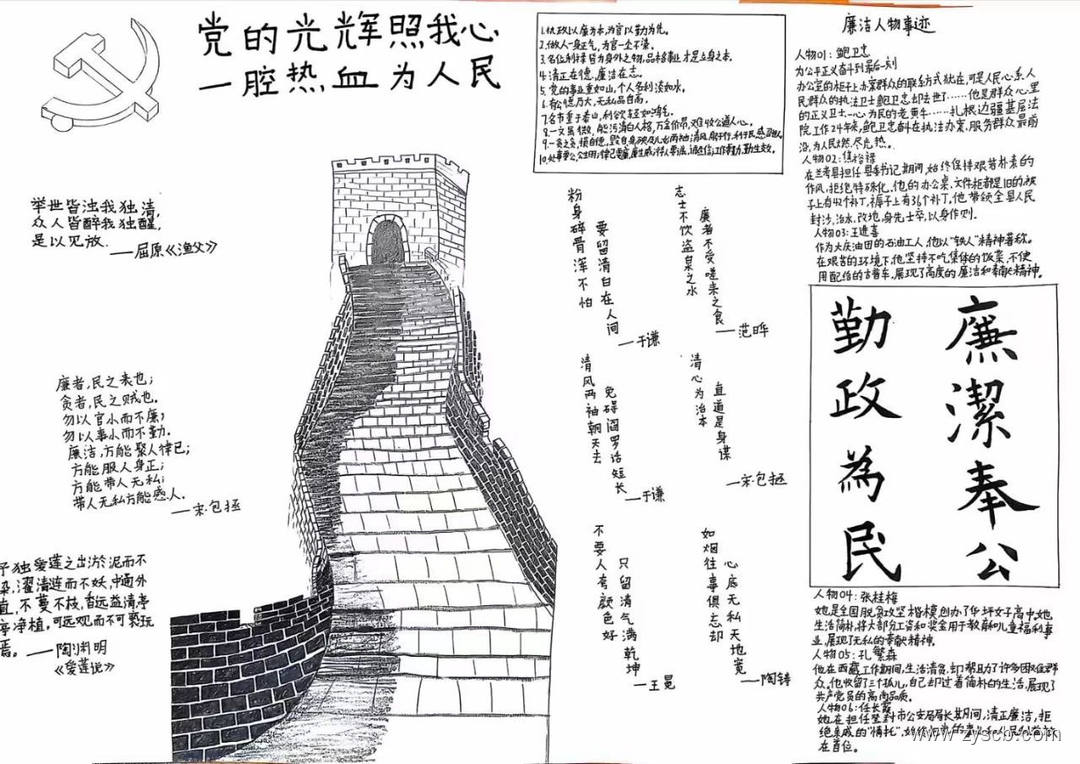 党的光辉照我心
一腔热血为人民
举世皆浊我独清,
众人皆醉我独醒,
是以见放.
——屈原《渔父》
廉者,民之表也;
贪者,民之贼也.
勿以官小而不廉;
勿以事小而不勤.
廉洁,方能聚人律己;
方能服人身正;
方能带人无私;
带人无私方能感人.
——宋·包拯
予独爱莲之出淤泥而不
染,濯清涟而不妖,中通外
直,不蔓不枝,香远益清,亭
亭净植,可远观而不可亵玩
焉。——陶渊明
《爱莲说》
1.执政以廉为本,为官以勤为先。
2.做人一身正气,为官一尘不染。
3.名位利禄皆为身外之物,品格事业才是立身之本。
4.清正在德,廉洁在志。
5.党的事业重如山,个人名利淡如水。
7.名节重于泰山,利欲轻如鸿毛。
粉身碎骨浑不怕
要留清白在人间
——于谦
志士不饮盗泉之水
廉者不受嗟来之食
——范晔
清风两袖朝天去
免碍阎罗话短长
——于谦
清心为治本
直道是身谋
——宋·包拯
不要人夸颜色好
只留清气满乾坤
——王冕
如烟往事俱忘却
心底无私天地宽
——陶铸
廉洁人物事迹
人物01:鲍卫忠
为公平正义奋斗到最后一刻
办公室的柜子上办案群众的联系方式犹在,可是人民心系人
民群众的执法卫士鲍卫忠却去世了……他是群众心里
的正义卫士,一心为民的老黄牛……扎根边疆基层法
院工作24年来,鲍卫忠奋斗在执法办案,服务群众最前
沿,为人民燃尽光热。
人物02:焦裕禄
在兰考县担任县委书记期间,始终保持艰苦朴素的
作风,拒绝特殊化,他的办公桌、文件柜都是旧的,被
子上有42个补丁,褥子上有36个补丁。他带领全县人民
封沙、治水、改地,身先士卒,以身作则。
人物03:王进喜
作为大庆油田的石油工人,他以“铁人”精神著称。
在艰苦的环境下,他坚持不吃集体的饭菜,不使
用配给的吉普车,展现了高度的廉洁和奉献精神。
廉潔奉公
勤政為民
人物04:张桂梅
她是全国脱贫攻坚楷模,创办了华坪女子高中,她
生活简朴,将大部分工资和奖金用于教育和儿童福利事
业,展现了无私的奉献精神。
人物05:孔繁森
他在西藏工作期间,生活清贫,却帮助了许多困难群
众。他收留了三个孤儿,自己却过着简朴的生活,展现了
共产党员的高尚品质。
人物06:任长霞
她在担任登封市公安局局长期间,清正廉洁,拒
绝亲戚的“情托”,
在首位。
www.zyscb.com